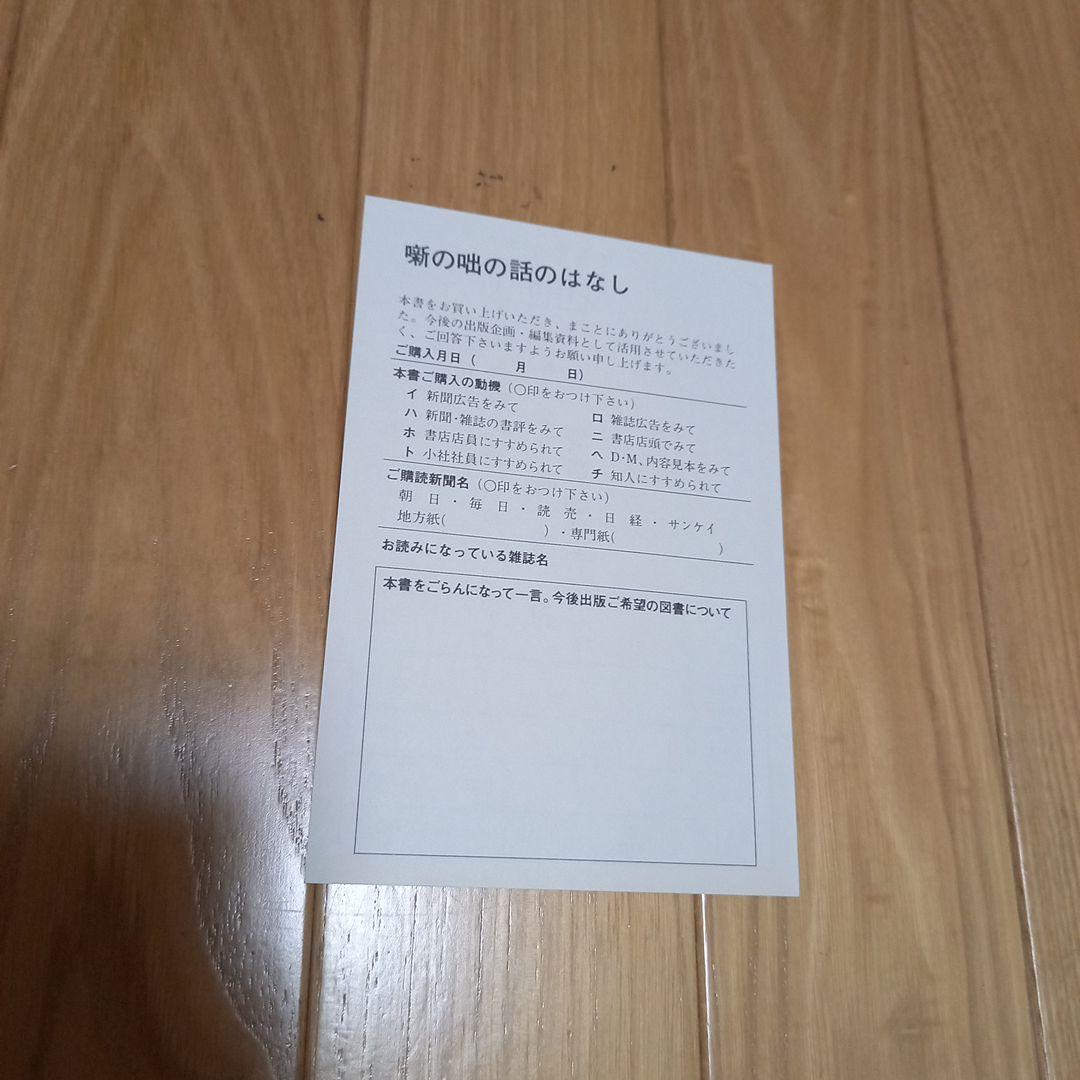 噺の咄の話のはなし
本書をお買い上げいただき、まことにありがとうございまし
た。今後の出版企画・編集資料として活用させていただきた
く、ご回答下さいますようお願い申し上げます。
ご購入月日（　　月　　日）
本書ご購入の動機（○印をおつけ下さい）
イ 新聞広告をみて　ロ 雑誌広告をみて
ハ 新聞・雑誌の書評をみて　ニ 書店店頭でみて
ホ 書店店員にすすめられて　ヘ D・M、内容見本をみて
ト 小社社員にすすめられて　チ 知人にすすめられて
ご購読新聞名（○印をおつけ下さい）
朝 日・毎 日・読 売・日 経・サンケイ
地方紙(　　　　)・専門紙(　　　　)
お読みになっている雑誌名
本書をごらんになって一言。今後出版ご希望の図書について